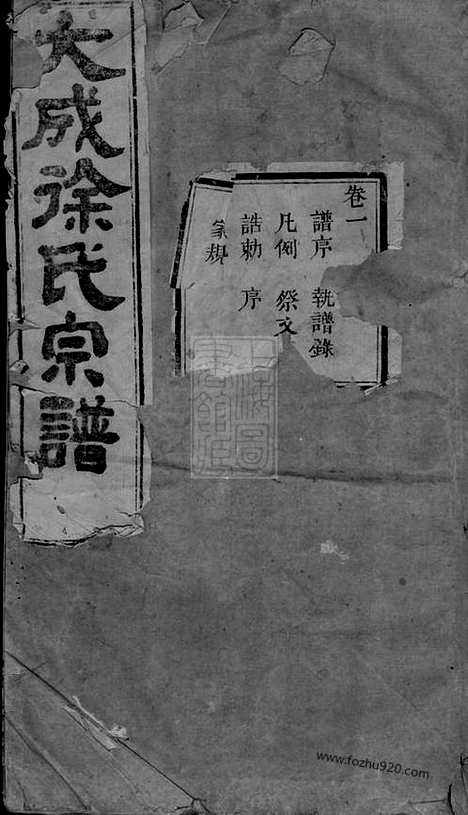 大成徐氏宗譜
卷一
譜序 執譜錄
凡例 祭文
誥勅 序
篆規
上海圖書館藏
www.fozhu920.com